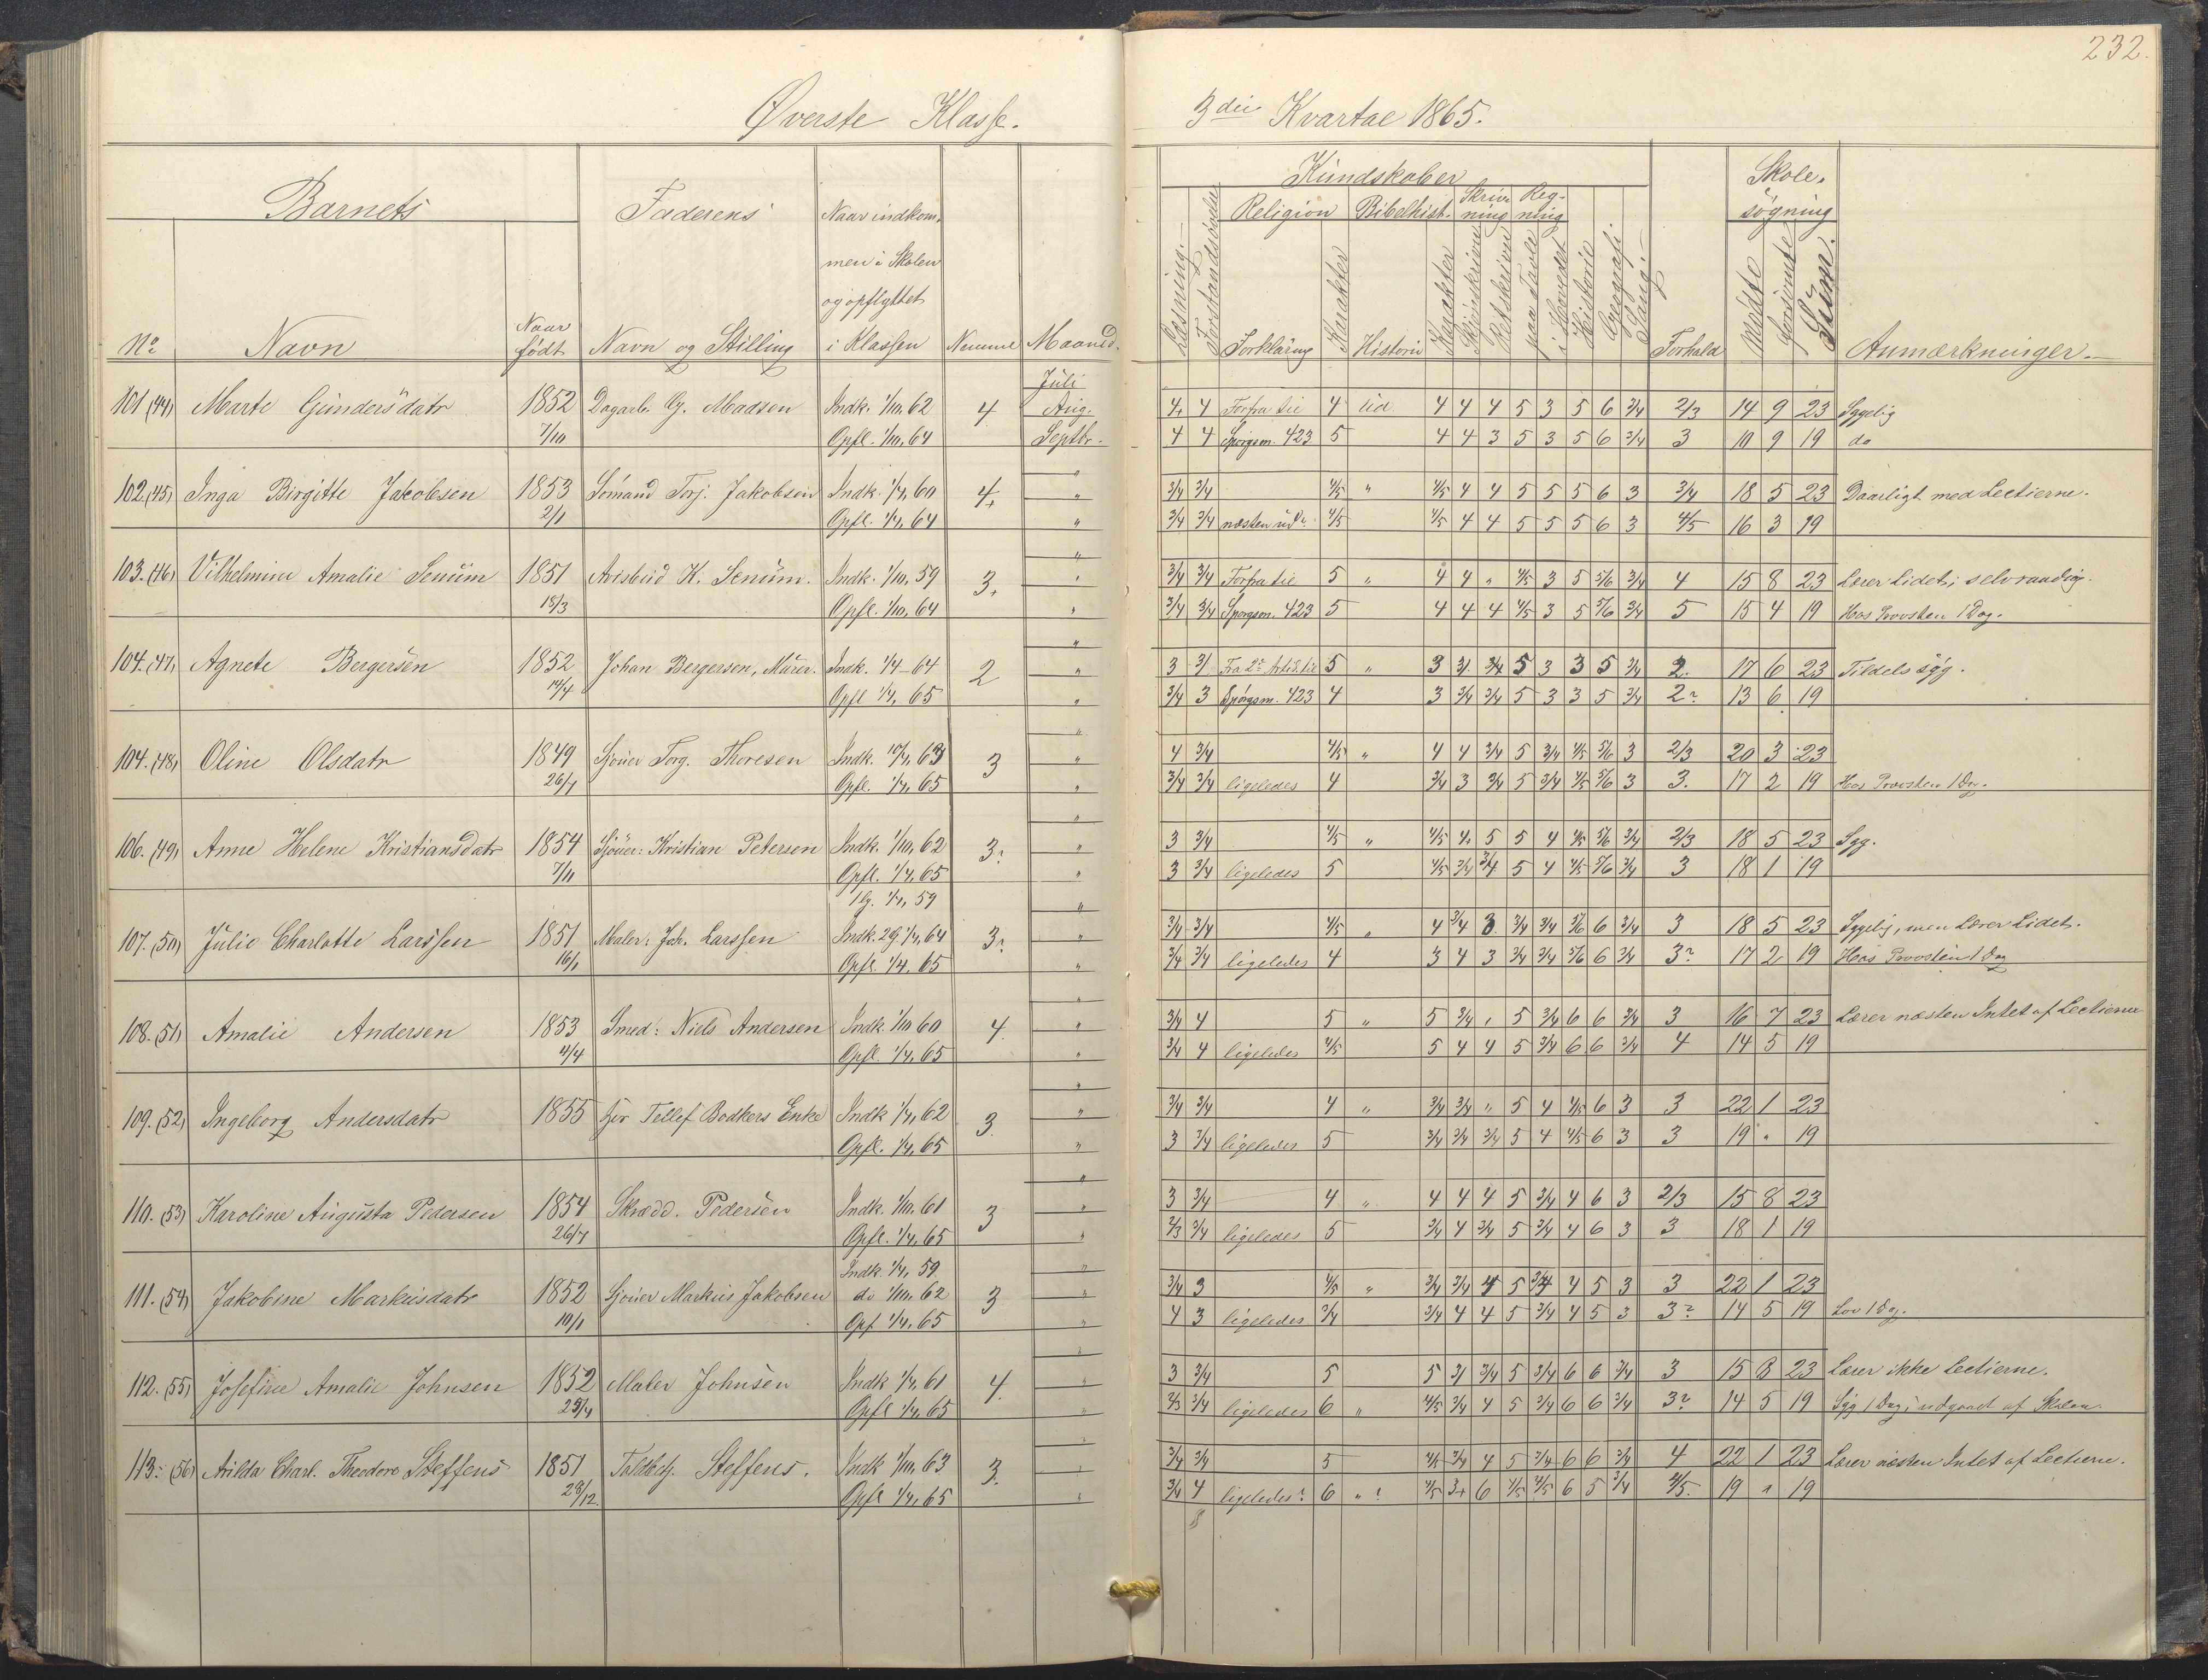 232.
Øverste Klasse. 3die Kvartal 1865.
Barnets Faderens Naar indkom- Kundskaber Skole-
men i Skolen Religion Bibelhist. Skriv- Reg- søgning
og opflyttet ning ning
No Navn Naar født Navn og Stilling i Klassen Nemme Maaned. Læsning. Forstandsøvelse Forklaring Karakter Historie Karakter Skjönskrivn Retskrivn paa Tavle i Hovedet Historie Geografi Sang. Forhold Mødte forsømte Sum. Anmærkninger.
Juli
101 (44) Marte Gundersdatr 1852 Dagarb. G. Madsen Indk. 1/10, 62 4 Aug. 4 4 Forfra til 4 lid 4 4 4 5 3 5 6 3/4 2/3 14 9 23 Sygelig
7/10 Opfl. 1/10, 64 Septbr. 4 4 Spörgsm. 423 5 4 4 3 5 3 5 6 3/4 3 10 9 19 do
102. (45) Inga Birgitte Jakobsen 1853 Sømand Torj. Jakobsen Indk. 1/4, 60 4+ " 3/4 3/4 4/5 " 4/5 4 4 5 5 5 6 3 3/4 18 5 23 Daarligt med Lectierne.
2/1 Opfl. 1/4, 64 " 3/4 3/4 næsten ud? 4/5 4/5 4 4 5 5 5 6 3 4/5 16 3 19
103. (46) Vilhelmine Amalie Senum 1851 Avisbud K. Senum. Indk. 1/10, 59 3+ " 3/4 3/4 Forfra til 5 " 4 4 " 4/5 3 5 5/6 3/4 4 15 8 23 Lærer Lidet;
15/3 Opfl. 1/10, 64 " 3/4 3/4 Spørgsm. 423 5 4 4 4 4/5 3 5 5/6 3/4 5 15 4 19 Hos Provsten 1 Dag.
104. (47) Agnete Bergersen 1852 Johan Bergersen, Murer. Indk. 1/4 - 64 2 " 3 3/ Fra 2? Art. til 5 " 3 3/ 3/4 5 3 3 5 3/4 2. 17 6 23 Tildels syg.
14/4 Opfl 1/4, 65 " 3/4 3 Spörgsm. 423 4 3 3/4 3/4 5 3 3 5 3/4 2? 13 6 19
104. (48) Oline Olsdatr 1849 Sjouer Torg. Thoresen Indk. 10/4, 63 3 " 4 3/4 4/5 " 4 4 3/4 5 3/4 4/5 5/6 3 2/3 20 3 23
26/7 Opfl. 1/4, 65 " 3/4 3/4 ligeledes 4 3/4 3 3/4 5 3/4 4/5 5/6 3 3. 17 2 19 Hos Provsten 1 Dag.
106. (49) Anne Helene Kristiansdatr 1854 Sjouer: Kristian Petersen Indk. 1/10, 62 3? " 3 3/4 4/5 " 4/5 4 5 5 4 4/5 5/6 3/4 2/3 18 5 23 Syg.
7/11 Opfl. 1/4, 65 " 3 3/4 ligeledes 5 4/5 3/4 3/4 5 4 4/5 5/6 3/4 3 18 1 19
1 g. 1/4, 59
107. (50) Julie Charlotte Larssen 1851 Maler: Joh. Larssen Indk. 2 g. 1/4, 64 3? " 3/4 3/4 4/5 " 4 3/4 3 3/4 3/4 5/6 6 3/4 3 18 5 23 Sygelig, men Lærer Lidet.
16/1 Opfl. 1/4. 65 " 3/4 3/4 ligeledes 4 3 4 3 3/4 3/4 5/6 6 3/4 3? 17 2 19 Hos Provsten 1 Dag
108. (51) Amalie Andersen 1853 Smed: Niels Andersen Indk 1/10 60 4 " 3/4 4 5 " 5 3/4 " 5 3/4 6 6 3/4 3 16 7 23 Lærer næsten Intet af Lectierne
4/4 Opfl 1/4, 65 " 3/4 4 ligeledes 4/5 5 4 4 5 3/4 6 6 3/4 4 14 5 19
109. (52) Ingeborg Andersdatr 1855 Tellef Bødkers Enke Indk 1/4, 62 3. " 3/4 3/4 4 " 3/4 3/4 " 5 4 4/5 6 3 3 22 1 23
Opfl. 1/4, 65 " 3 3/4 ligeledes 5 3/4 3/4 3/4 5 4 4/5 6 3 3 19 " 19
110. (53) Karoline Augusta Pedersen 1854 Skrædd. Pedersen Indk. 1/10. 61 3 " 3 3/4 4 " 4 4 4 5 3/4 4 6 3 2/3 15 8 23
26/7 Opfl. 1/4, 65 " 2/3 3/4 ligeledes 5 3/4 4 3/4 5 3/4 4 6 3 3 18 1 19
Indk. 1/4, 59
111. (54) Jakobine Markusdatr 1852 Sjouer Markus Jakobsen do 1/10, 62 3 " 3/4 3 4/5 " 3/4 3/4 4 5 3/4 4 5 3 3 22 1 23
10/1 Opf 1/4, 65 " 4 3 ligeledes 3/4 3/4 4 4 5 3/4 4 5 3 3? 14 5 19 Lov 1 Dag.
112. (55) Josefine Amalie Johnsen 1852 Maler Johnsen Indk 1/4, 61 4 " 3 3/4 5 5 3/ 3/4 5 3/4 6 6 3/4 3 15 8 23 Lærer ikke Lectierne.
25/4 Opfl 1/4, 65 " 2/3 3/4 ligeledes 6 " 4/5 3/4 4 5 3/4 6 6 3/4 3? 14 5 19 Syg 1 Dag; udgaaet af Skolen.
113. (56) Arilda Charl. Theodore Steffens 1851 Toldbetj. Steffens. Indk 1/10, 63 3. " 3/4 3/4 5 4/5 3/4 4 5 3/4 6 6 3/4 4 22 1 23 Lærer næsten Intet af Lectierne.
28/12. Opfl 1/4, 65 " 3/4 4 ligeledes? 6 "? 4/5 3+ 6 4/5 4/5 6 5 3/4 4/5. 19 " 19